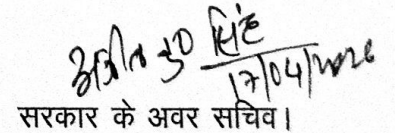 अजीत कु० सिंह
17/04/2026
सरकार के अवर सचिव।